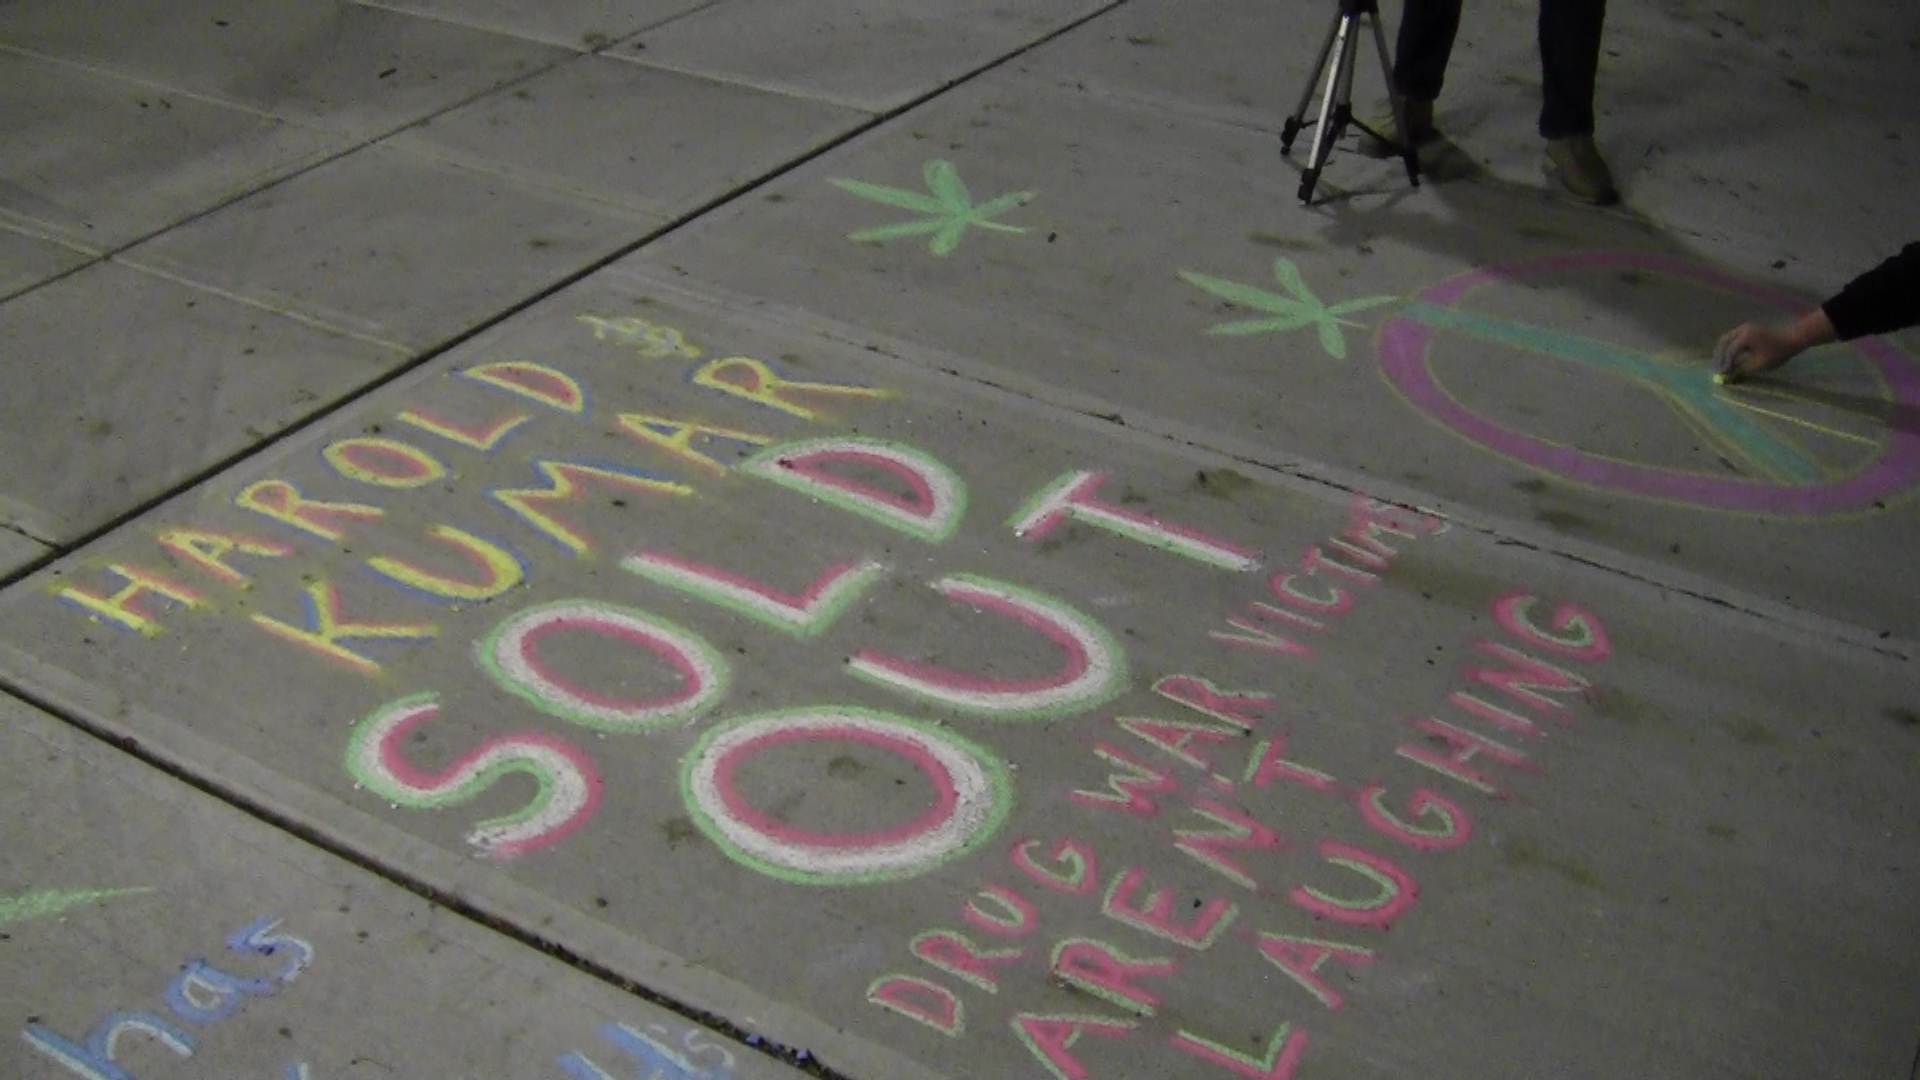 HAROLD
KUMAR
SOLD
OUT
DRUG WAR VICTIMS
AREN'T
LAUGHING
has